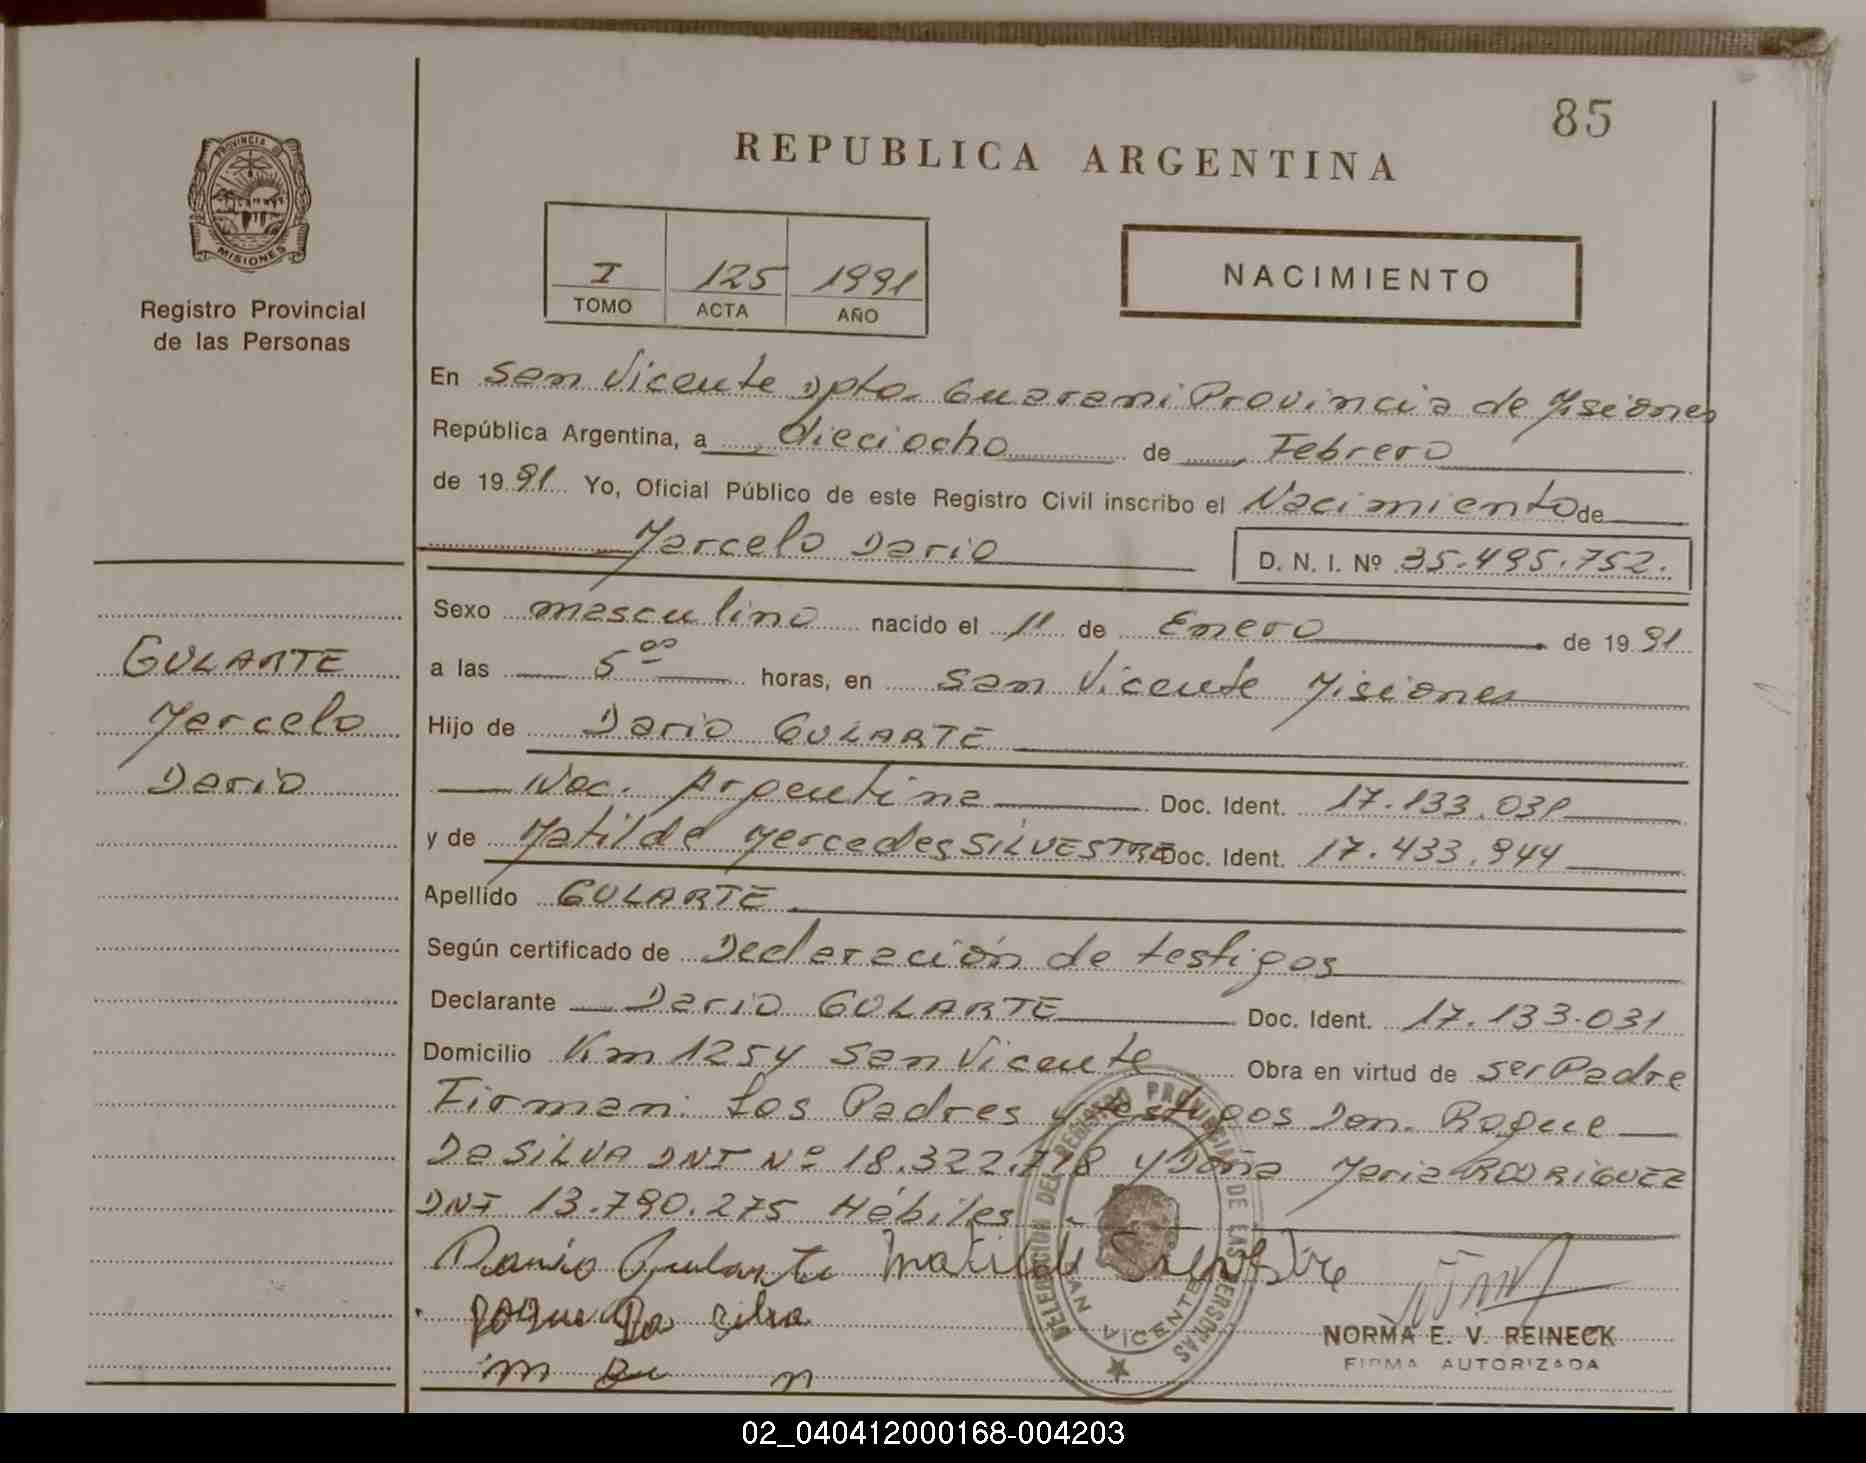 85
REPUBLICA ARGENTINA
PROVINCIA DE
MISIONES
Registro Provincial
de las Personas
I 125 1991
TOMO ACTA AÑO
NACIMIENTO
En San Vicente Dpto. Guarani Provincia de Misiones
República Argentina, a dieciocho de Febrero
de 1991 Yo, Oficial Público de este Registro Civil inscribo el Nacimiento de
Marcelo Dario D. N. I. Nº 35.495.752.
GULARTE
Marcelo
Dario
Sexo masculino nacido el 11 de Enero de 1991
a las 5 00 horas, en San Vicente Misiones
Hijo de Dario GULARTE
Nac. Argentina Doc. Ident. 17.133.031
y de Matilde Mercedes SILVESTRE Doc. Ident. 17.433.944
Apellido GULARTE
Según certificado de Declaración de testigos
Declarante Dario GULARTE Doc. Ident. 17.133.031
Domicilio Km 1254 San Vicente Obra en virtud de ser Padre
Firman: Los Padres y testigos Don. Roque
Da SILVA DNI Nº 18.322.718 y Doña Maria RODRIGUEZ
DNI 13.790.275 Hábiles.
Dario Gularte Matilde Silvestre
Roque Da Silva
DELEGACION DEL REGISTRO PROVINCIAL DE LAS PERSONAS
SAN VICENTE
NORMA E. V. REINECK
FIRMA AUTORIZADA
02_040412000168-004203